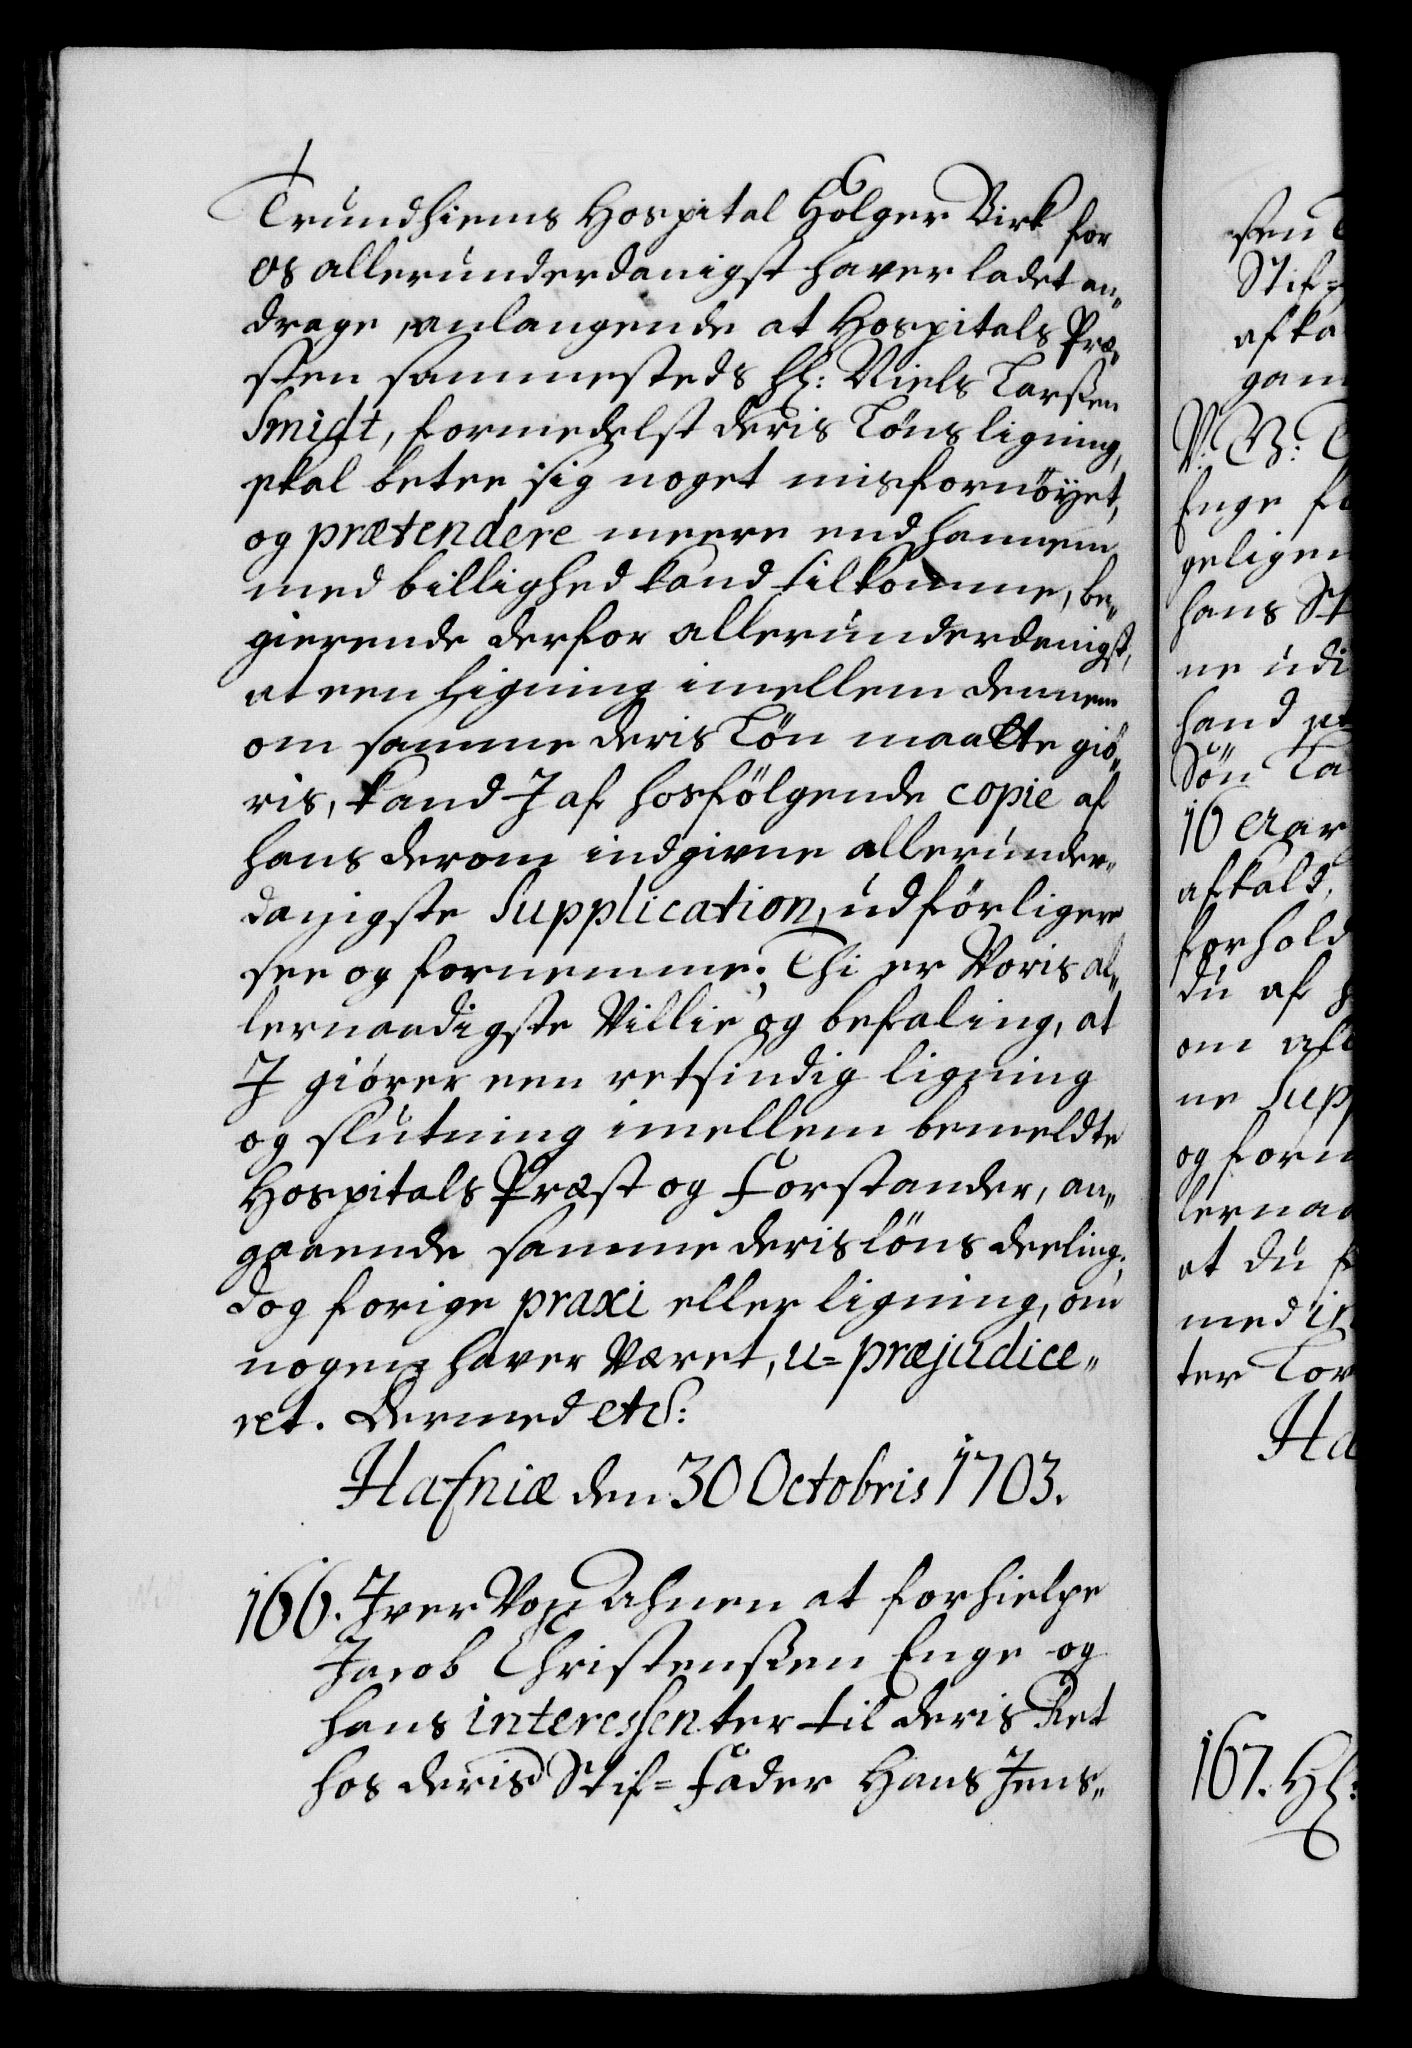 Trundhiems Hospital Holger Birk for
os allerunderdanigst haver ladet an„
drage, anlangende at Hospitals Præ„
sten sammesteds H: Niels Larssen
Smidt, formedelst deris Lóns ligning,
skal betee sig noget misfornöyet,
og prætendere meere end hannem
med billighed kand tilkomme, be„
gierende derfor allerunderdanigst,
at een Ligning imellem dennem
om samme deris Lön maatte giö„
ris, kand I af hosfölgende copie af
hans derom indgivne allerunder„
danigste Supplication, udförligere
see og fornemme; Thi er Voris al„
lernaadigste Villie og befaling, at
I giörer een retsindig ligning
og slutning imellem bemeldte
Hospitals Præst og Forstander, an„
gaaende samme deris löns deeling;
dog forige praxi eller ligning, om
nogen haver været, u=præjudice„
ret. Dermed etc:
Hafniæ den 30 Octobris 1703.
166. Iver Von Ahnen at forhielpe
Jacob Christenssen Enge og
hans interessenter til deris Ret
hos deris Stif=Fader Hans Jens„
sen
Stif=
afka
gam
V: G: T
Enge
geligen
hans St
ne udi
hand
Sön La
16 Aar
afkald,
forhold
du af
om
ne Supp
og forn
lernaa
at du
med
ter Lov
Ha
167. H: